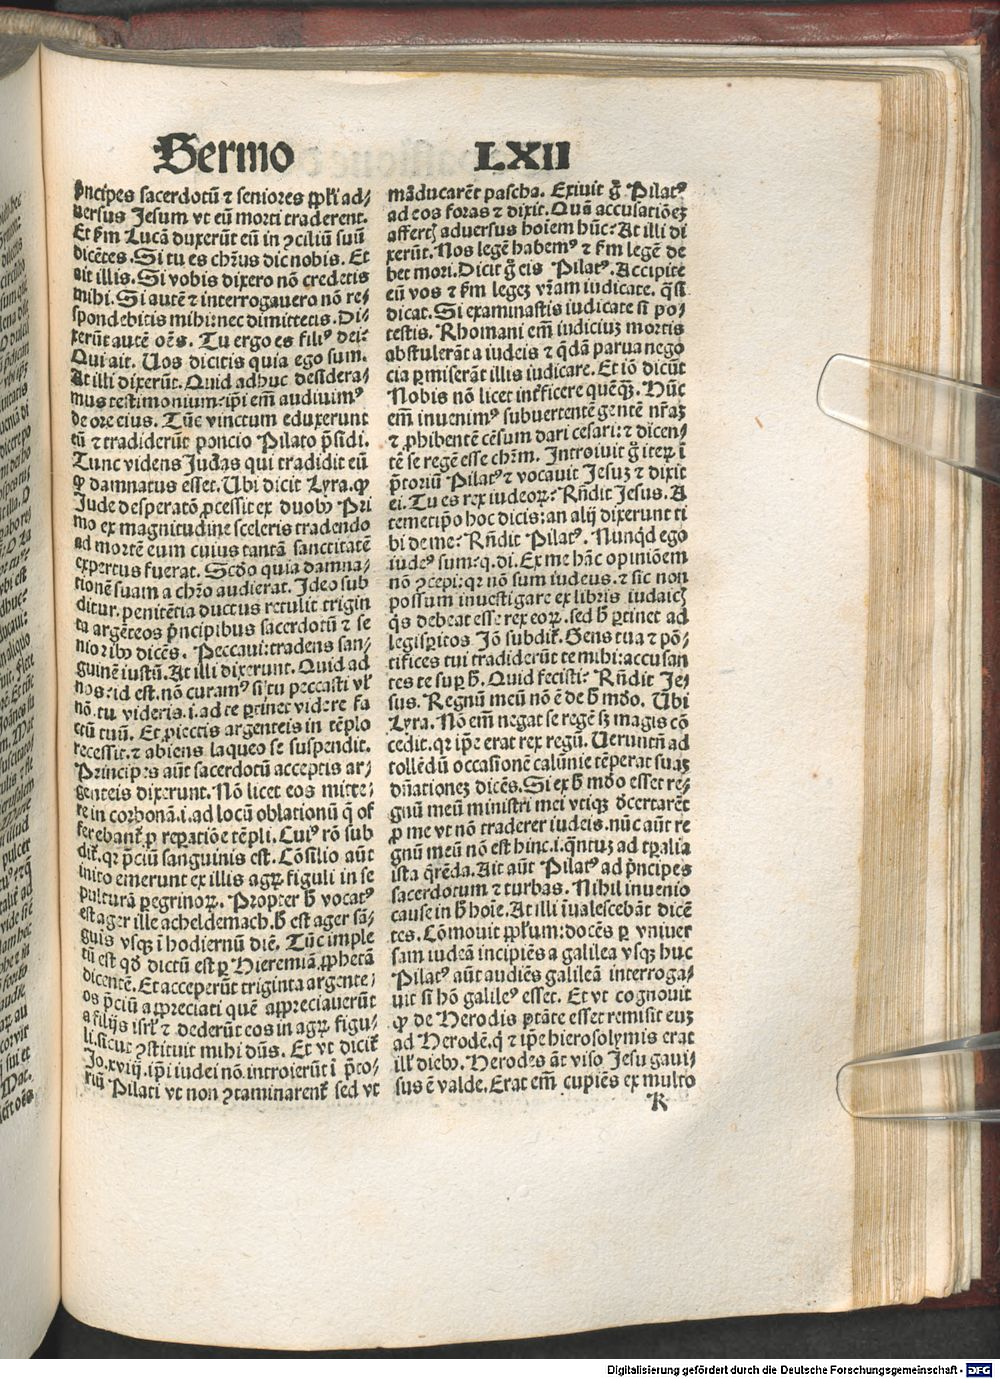 Sermo LXII
pͥncipes sacerdotū ⁊ seniores ppl̓i ad⸗
uersus Jesum vt eū morti traderent.
Et ẜm Lucā duxerūt eū in ꝯciliū suū
dicētes. Si tu es chr̄us dic nobis. Et
ait illis. Si vobis dixero nō credetis
mihi. Si autē ⁊ interrogauero nō re⸗
spondebitis mihi: nec dimittetis. Di⸗
xerūt autē oēs. Tu ergo es filiꝰ dei?
Qui ait. Uos dicitis quia ego sum.
At illi dixerūt. Quid adhuc desidera⸗
mus testimonium: ip̄i em̄ audiuimꝰ
de ore eius. Tūc vinctum eduxerunt
eū ⁊ tradiderūt poncio Pilato p̄sidi.
Tunc videns Judas qui tradidit eū
ꝙ damnatus esset. Ubi dicit Lyra. ꝙ
Jude desperatō ꝓcessit ex duobꝫ Pri
mo ex magnitudine sceleris tradendo
ad mortē eum cuius tantā sanctitatē
expertus fuerat. Scd̓o quia damna⸗
tionē suam a chr̄o audierat. Ideo sub
ditur. penitētia ductus retulit trigin
ta argēteos pͥncipibus sacerdotū ⁊ se
nioribꝫ dicēs. Peccaui: tradens san⸗
guinē iustū. At illi dixerunt. Quid ad
nos: id est. nō curamꝰ si tu peccasti vl̓
nō. tu videris. i. ad te ꝑtinet videre fa
ctū tuū. Et ꝓiectis argenteis in tēplo
recessit. ⁊ abiens laqueo se suspendit.
Principes aūt sacerdotū acceptis ar⸗
genteis dixerunt. Nō licet eos mitte⸗
re in corbonā. i. ad locū oblationū q̄ of
ferebant̄ ꝓ reꝑatiōe tēpli. Cuiꝰ rō sub
dit̄. qꝛ p̄ciū sanguinis est. Cōsilio aūt
inito emerunt ex illis agrū figuli in se
pulturā ꝑegrinoꝝ. Propter h̓ vocatꝰ
est ager ille acheldemach. h̓ est ager sā⸗
guis vsqꝫ ī hodiernū diē. Tūc imple
tū est qd̓ dictū est ꝑ Hieremiā ꝓphetā
dicentē. Et acceperūt triginta argente⸗
os p̄ciū appreciati quē appreciauerūt
a filijs isrl̓ ⁊ dederūt eos in agrū figu⸗
li. sicut ꝯstituit mihi dūs. Et vt dicit̄
Jo. xviij. ip̄i iudei nō. introierūt ī p̄to⸗
riū Pilati vt non ꝯtaminarent̄ sed vt
māducarēt pascha. Exiuit g̊ Pilatꝰ
ad eos foras ⁊ dixit. Quā accusatiōeꝫ
affertꝭ aduersus hoīem hūc? At illi di
xerūt. Nos legē habemꝰ ⁊ ẜm legē de
bet mori. Dicit g̊ eis Pilatꝰ. Accipite
eū vos ⁊ ẜm legeꝫ vr̄am iudicate. q̄si
dicat. Si examinastis iudicate si po⸗
testis. Rhomani em̄ iudiciuꝫ mortis
abstulerāt a iudeis ⁊ q̄dā parua nego
cia ꝑmiserāt illis iudicare. Et iō dicūt
Nobis nō licet int̓ficere quēqꝫ. Hūc
em̄ inuenimꝰ subuertentē gentē nr̄aꝫ
⁊ ꝓhibentē cēsum dari cesari: ⁊ dicen⸗
tē se regē esse chr̄m. Introiuit g̊ iterꝫ ī
p̄toriū Pilatꝰ ⁊ vocauit Jesuꝫ ⁊ dixit
ei. Tu es rex iudeoꝝ? Rn̄dit Jesus. A
temetip̄o hoc dicis: an alij dixerunt ti
bi de me? Rn̄dit Pilatꝰ. Nunqͥd ego
iudeꝰ sum: q. di. Ex me hāc opiniōem
nō ꝯcepi: qꝛ nō sum iudeus. ⁊ sic non
possum inuestigare ex libris iudaicꝭ
qͥs debeat esse rex eoꝝ. sed h̓ ꝑtinet ad
legisꝑitos Jō subdit̄. Gens tua ⁊ pō⸗
tifices tui tradiderūt te mihi: accusan
tes te suꝑ h̓. Quid fecisti? Rn̄dit Je⸗
sus. Regnū meū nō ē de h̓ mūdo. Ubi
Lyra. Nō em̄ negat se regē sꝫ magis cō
cedit. qꝛ ip̄e erat rex regū. Ueruntn̄ ad
tollēdū occasionē calūnie tēperat suaꝫ
dn̄ationeꝫ dicēs. Si ex h̓ mūdo esset re⸗
gnū meū ministri mei vtiqꝫ d̓certarēt
ꝓ me vt nō traderer iudeis. nūc aūt re
gnū meū nō est hinc. i. qͣntuꝫ ad tp̄alia
ista q̄rēda. Ait aūt Pilatꝰ ad pͥncipes
sacerdotum ⁊ turbas. Nihil inuenio
cause in h̓ hoīe. At illi īualescebāt dicē
tes. Cōmouit ppl̓um: docēs ꝑ vniuer
sam iudeā incipiēs a galilea vsqꝫ huc
Pilatꝰ aūt audiēs galileā interroga⸗
uit si hō galileꝰ esset. Et vt cognouit
ꝙ de Herodis p̄tāte esset remisit euꝫ
ad Herodē. q̄ ⁊ ip̄e hierosolymis erat
ill̓ diebꝫ. Herodes āt viso Jesu gaui⸗
sus ē valde. Erat em̄ cupiēs ex multo
K
Digitalisierung gefördert durch die Deutsche Forschungsgemeinschaft - DFG